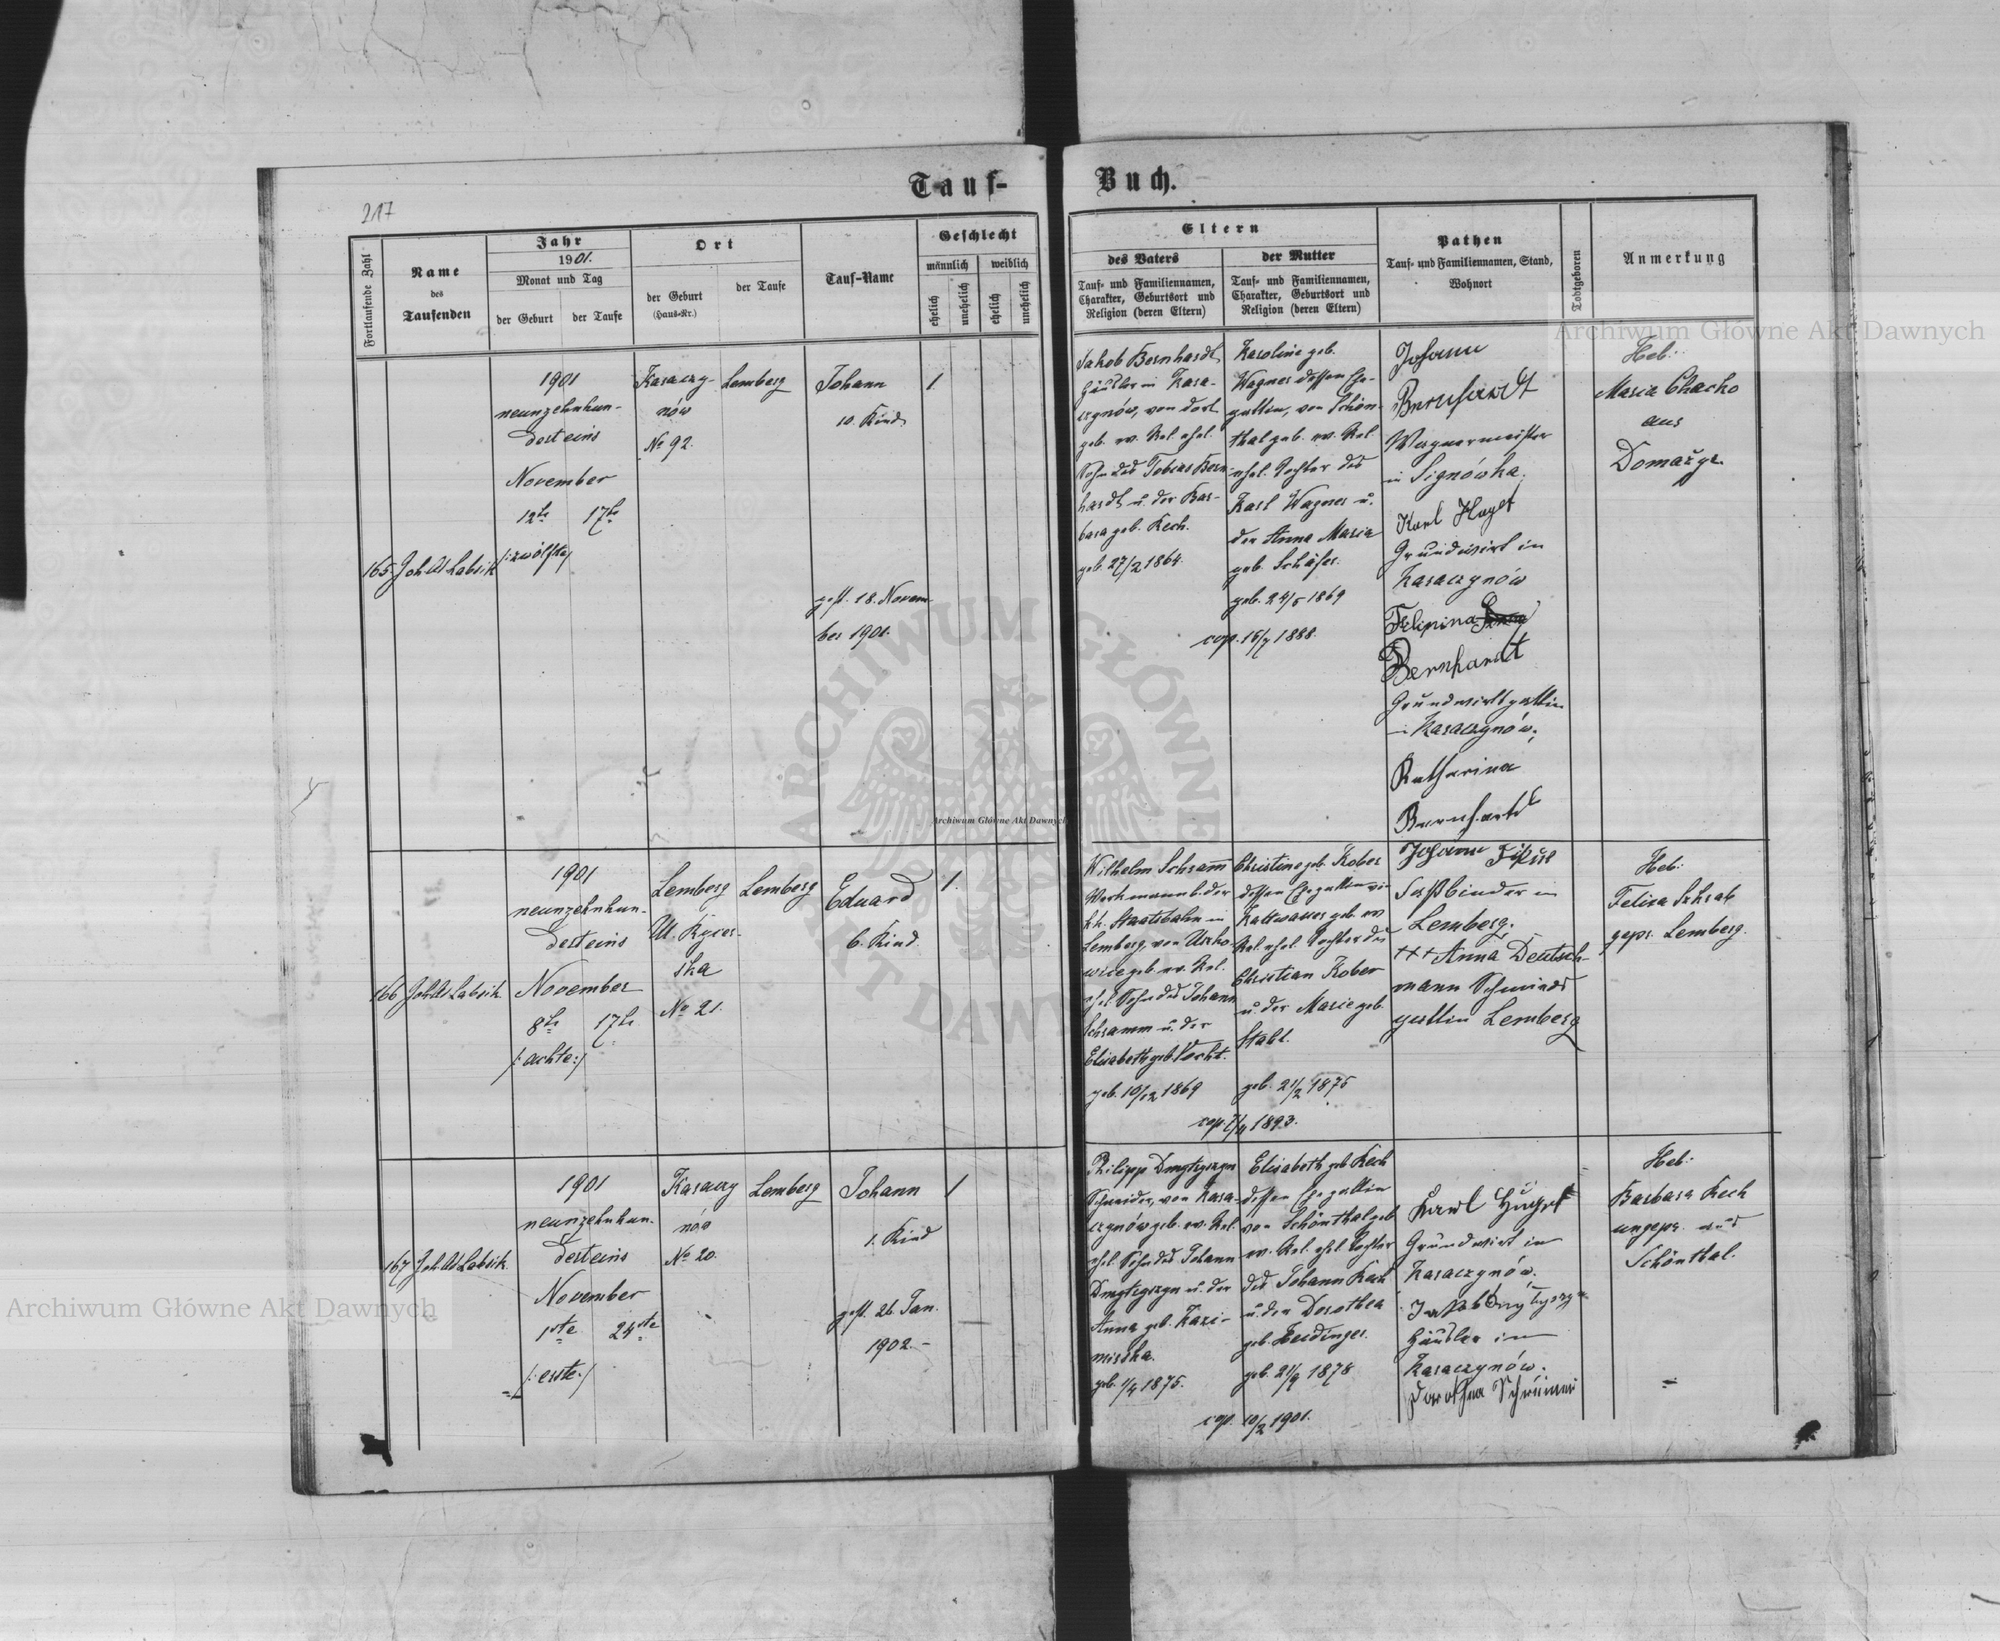 Tauf-
Buch.
217
Fortlaufende Zahl
Name
des
Taufenden
Jahr
1901.
Monat und Tag
der Geburt
der Taufe
Ort
der Geburt
(Haus-Nr.)
der Taufe
Tauf-Name
Geschlecht
männlich
weiblich
ehelich
unehelich
ehelich
unehelich
Eltern
des Vaters
Tauf- und Familiennamen,
Charakter, Geburtsort und
Religion (deren Eltern)
der Mutter
Tauf- und Familiennamen,
Charakter, Geburtsort und
Religion (deren Eltern)
Pathen
Tauf- und Familiennamen, Stand,
Wohnort
Todtgeboren
Anmerkung
165
1901
neunzehnhun-
dert eins
November
12te
17te
/:zwölfte:/
Karaczy-
nów
No 92.
Lemberg
Johann
10. Kind
gest. 18. Novem-
ber 1901.
1.
Jakob Bernhardt
Häusler in Kara-
czynów, von dort
geb. ev. Rel. ehel.
Sohn des Tobias Bern-
hardt u. der Bar-
bara geb. Kech.
geb. 27/2 1864.
Karoline geb.
Wagner dessen Ehe-
gattin, von Schön-
thal geb. ev. Rel.
ehel. Tochter des
Karl Wagner u.
der Anna Maria
geb. Schäfer.
geb. 24/5 1869
cop. 15/7 1888.
Johann
Bernhardt
Wagnermeister
in Signówka.
Karl
Grundwirt in
Karaczynów
Filipina
Bernhardt
Grundwirtsgattin
in Karaczynów,
Katharina
Bernhardt
Heb:
Maria Chacko
aus
Domażyr.
166
1901
neunzehnhun-
dert eins
November
8te
17te
/:achte:/
Lemberg
Ul. Rycer-
ska
No 21.
Lemberg
Eduard
6. Kind
1.
Wilhelm Schramm
Werkmann b. der
k.k. Staatsbahn in
Lemberg, von
geb. ev. Rel.
ehel. Sohn des Johann
Schramm u. der
Elisabeth geb.
geb. 10/12 1869
Christine geb. Kober
dessen Ehegattin von
Kaltwasser geb. ev.
Rel. ehel. Tochter des
Christian Kober
u. der Marie geb.
Stahl.
geb. 21/2 1875
1893.
Johann
Faßbinder in
Lemberg.
+++ Anna Deutsch-
mann Schmieds
gattin Lemberg
Heb:
Felixa
gepr. Lemberg.
167
1901
neunzehnhun-
dert eins
November
1ste
24ste
/:erste:/
Karaczy
nów
No 20.
Lemberg
Johann
1. Kind
gest. 26. Jan.
1902.-
1
Philipp Dmytryszyn
Schneider, von Kara-
czynów geb. ev. Rel.
ehel. Sohn des Johann
Dmytryszyn u. der
Anna geb. Kazi-
mirska.
geb. 1/4 1875.
Elisabeth geb. Kech
dessen Ehegattin
von Schönthal geb.
ev. Rel. ehel. Tochter
des Johann Kech
u. der Dorothea
geb. Heidinger.
geb. 21/9 1878
cop. 10/2 1901.
Karl
Grundwirt in
Karaczynów.
Jakob Dmytryszyn
Häusler in
Karaczynów.
Dorothea
Heb:
Barbara Kech
ungepr. aus
Schönthal.
Archiwum Główne Akt Dawnych
Archiwum Główne Akt Dawnych
Archiwum Główne Akt Dawnych
ARCHIWUM GŁÓWNE AKT DAWNYCH